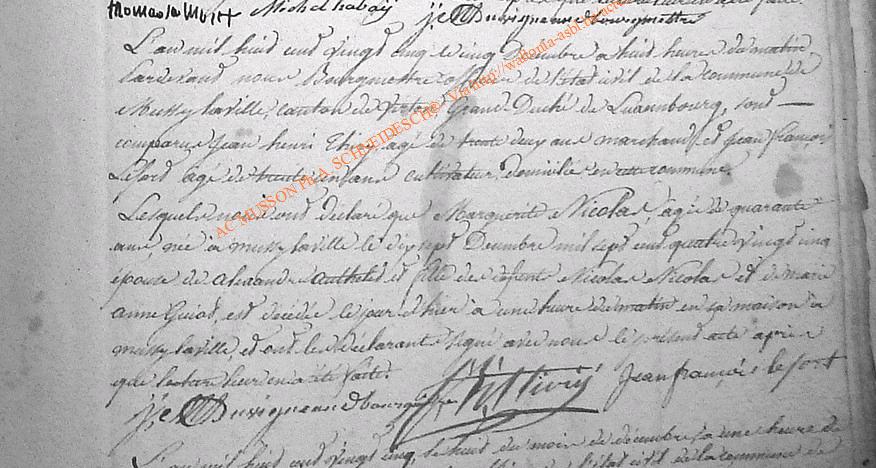 thomas la Mort Michel habay j j e Duvigneaud bourgmettre
L'an mil huit cent vingt cinq le cinq Décembre a huit heures du matin
Pardevant nous Bourgmestre officier de l'état civil de la commune de
Mussy laville, canton de Virton, Grand Duché de Luxembourg, sont
comparus Jean henri Thiry agé de trente deux ans marchand et Jean François
Lefort agé de trente cinq ans cultivateur domiciliés en cette commune.
Lesquels nous ont déclaré que Marguerite Nicolas, agée de quarante
ans, née a mussy laville le dix sept Décembre mil sept cent quatre vingt cinq
épouse de et fille des défunts Nicolas Nicolas et de marie
anne Guiot, est décédée le jour d'hier a une heure du matin en sa maison a
mussy laville, et ont les déclarants signé avec nous le présent acte après
que lecture leur en a été faite.
Jean françois le fort
j j e Duvigneaud bourgmettre
L'an mil huit cent vingt cinq, le huit du mois de décembre a une heure de
de l'état civil de la commune de
AC MUSSON Ph A. SCHNEIDESCHE Via http://wallonia-asbl